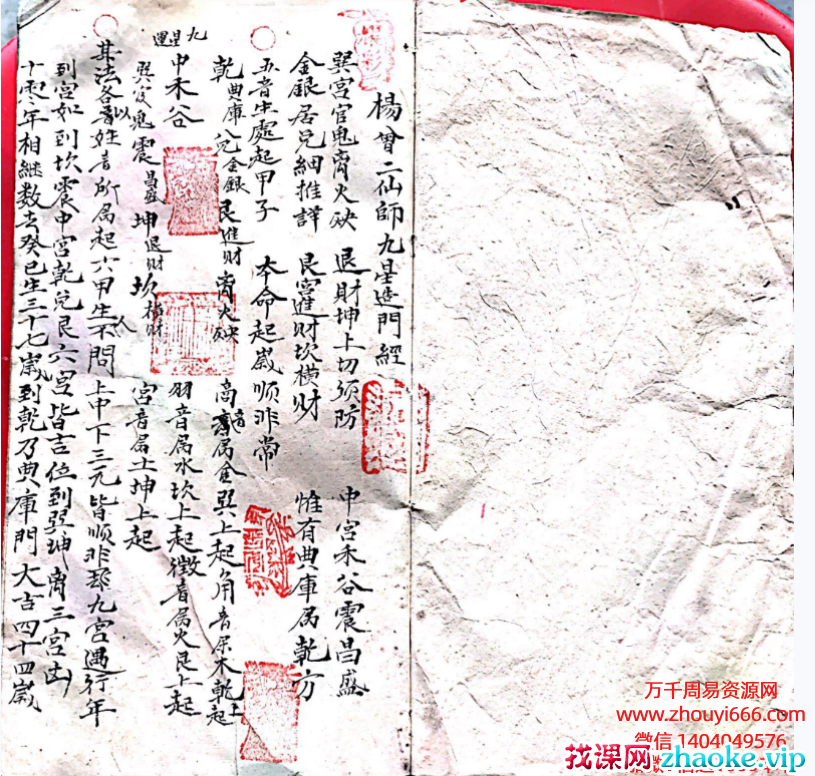 楊曾二仙師九星造門經
巽宮官鬼離火殃 退財坤上切須防 中宮禾谷震昌盛
金銀居兑細推詳 艮宮進財坎橫財 惟有典庫居乾方
五音生處起甲子 本命起歲順非常
乾典庫 兑金銀 艮進財 离火殃 商音属金巽上起角音属木乾上起
九星運
中禾谷 羽音属水坎上起徵音属火艮上起
巽官鬼 震昌盛 坤退財 坎橫財 宮音属土坤上起
其法各以音姓音所属起六甲生人不問上中下三元皆順飛九宮遇行年
到宮如到坎震中宮乾兑艮六宮皆吉位到巽坤离三宮凶
十零年相继数去癸巳生三十七歲到乾乃典庫門大吉四十四歲
万千周易资源网
www.zhouyi666.com
微信1404049576
找课网zhaoke.vip